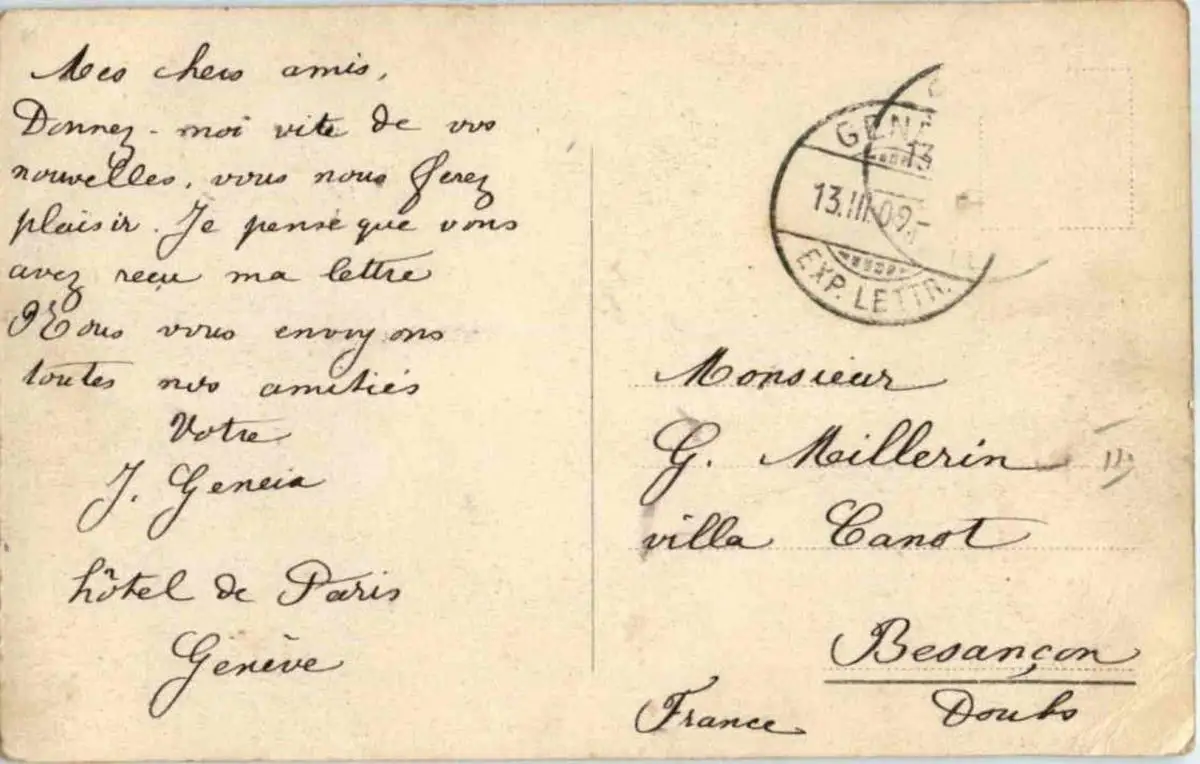 Mes chers amis,
Donnez-moi vite de vos
nouvelles, vous nous ferez
plaisir. Je pense que vous
avez reçu ma lettre
Nous vous envoyons
toutes nos amitiés
Votre
J. Geneia
hôtel de Paris
Genève
13.III.09
EXP. LETTR.
Monsieur
G. Millerin
villa Canot
Besançon
Doubs
France